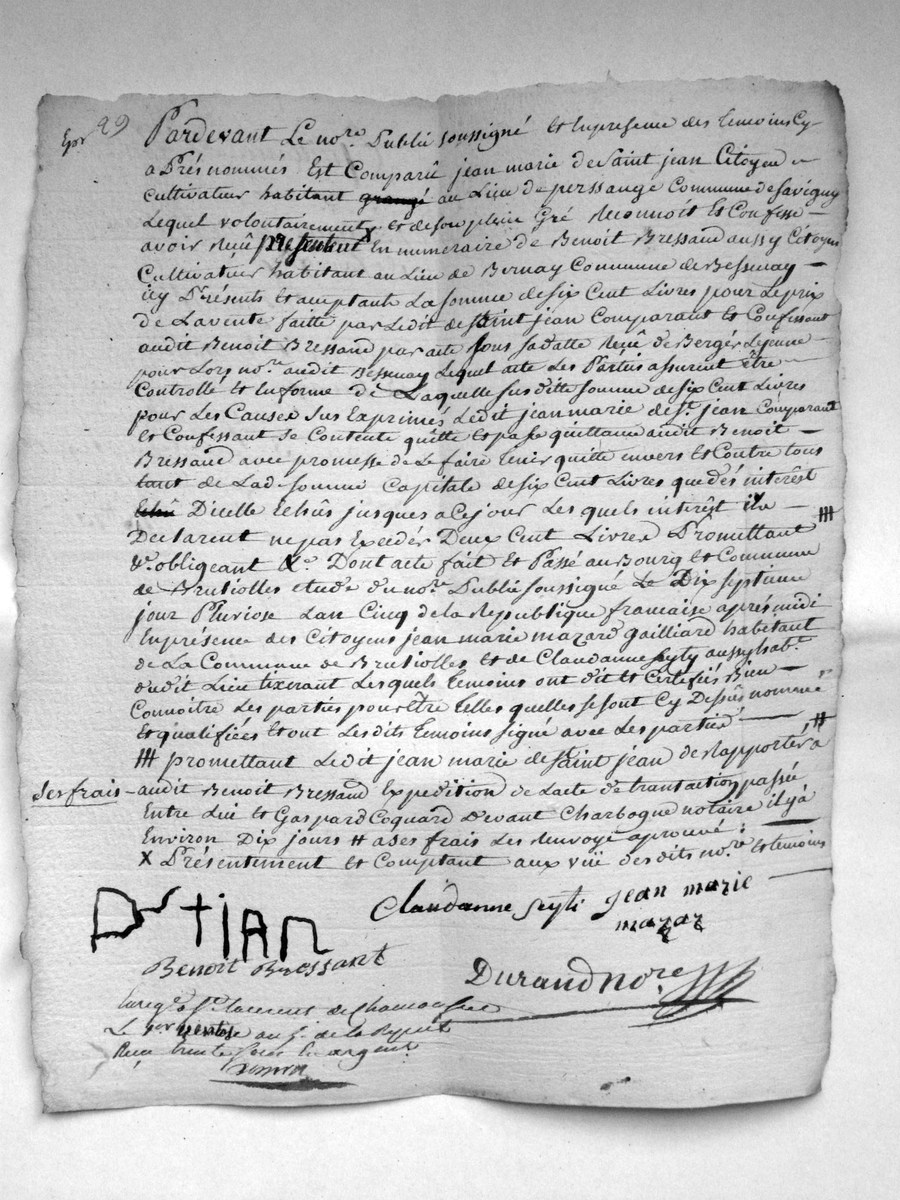 Epr 29
Pardevant Le no.re Publié soussigné et En presense des temoins Cy
a Prés nommés Est Comparû jean marie de Saint jean Citoyen
Cultivateur habitant grangé au Lieu de perssange Commune de Savigny
Lequel volontairement x et de son plein Gré Reconnoit Et Confesse
avoir Reçû presentent En numeraire de Benoit Bressand aussy Citoyen
Cultivateur habitant au Lieu de Bernay Commune de Bessenay
icy Présents Et acceptants La somme de six Cent Livres pour Le prix
de La vente faitte par Ledit de Saint jean Comparant Et Confessant
audit Benoit Bressand par acte sous sa datte Reçû de Berger Lejeune
pour Lors no.re audit Bessenay Lequel acte Les Parties assurent être
Controllé Et En forme de Laquelle susditte somme de six Cent Livres
pour Les Causes sus Exprimés Ledit jean marie de St. jean Comparant
Et Confessant se Contente quitte Et passe quittance audit Benoit
Bressand avec promesse de Le faire tenir quitte envers Et Contre tous
tant de Lad. somme Capitale de six Cent Livres que des interêst
Echû Dicelle Echûs jusques a Ce jour Les quels interêst ils
Declarent ne pas Exceder Deux Cent Livres Promettant #
&.c obligeant &.c Dont acte fait Et Passé au Bourg Et Commune
de Brusiolles Etude du no.re Publié soussigné Le Dix septieme
jour Pluviose Lan Cinq de La Republique francaise aprés midi
En présence des Citoyens jean marie mazard gailliard habitant
de La Commune de Brusiolles Et de Claudanne Syty aussy hab.t
dudit Lieu tixerant Lesquels temoins ont dit Et Certifiés Bien
Connoitre Les parties pour être telles quelles se sont Cy Dessûs nommé
Et qualifiées Et ont Lesdits temoins signé avec Les parties
# promettant Ledit jean marie de Saint jean de Rapporter #a
ses frais audit Benoit Bressand Expedition de Lacte de transaction passée
Entre Lui Et Gaspard Coquard Devant Charbogne notaire il y a
Environ Dix jours # a ses frais Les Renvoye aprouvé
X Présentement Et Comptant aux vüe desdits no.re Et temoins
D St jean
Claudanne Seyti jean marie
mazar
Benoit Bressant
Durand no.re
Enreg.é a St. Laurent de Chamousset
Le 1er ventose an 5.e de la Repub
Reçu trente sous En argent